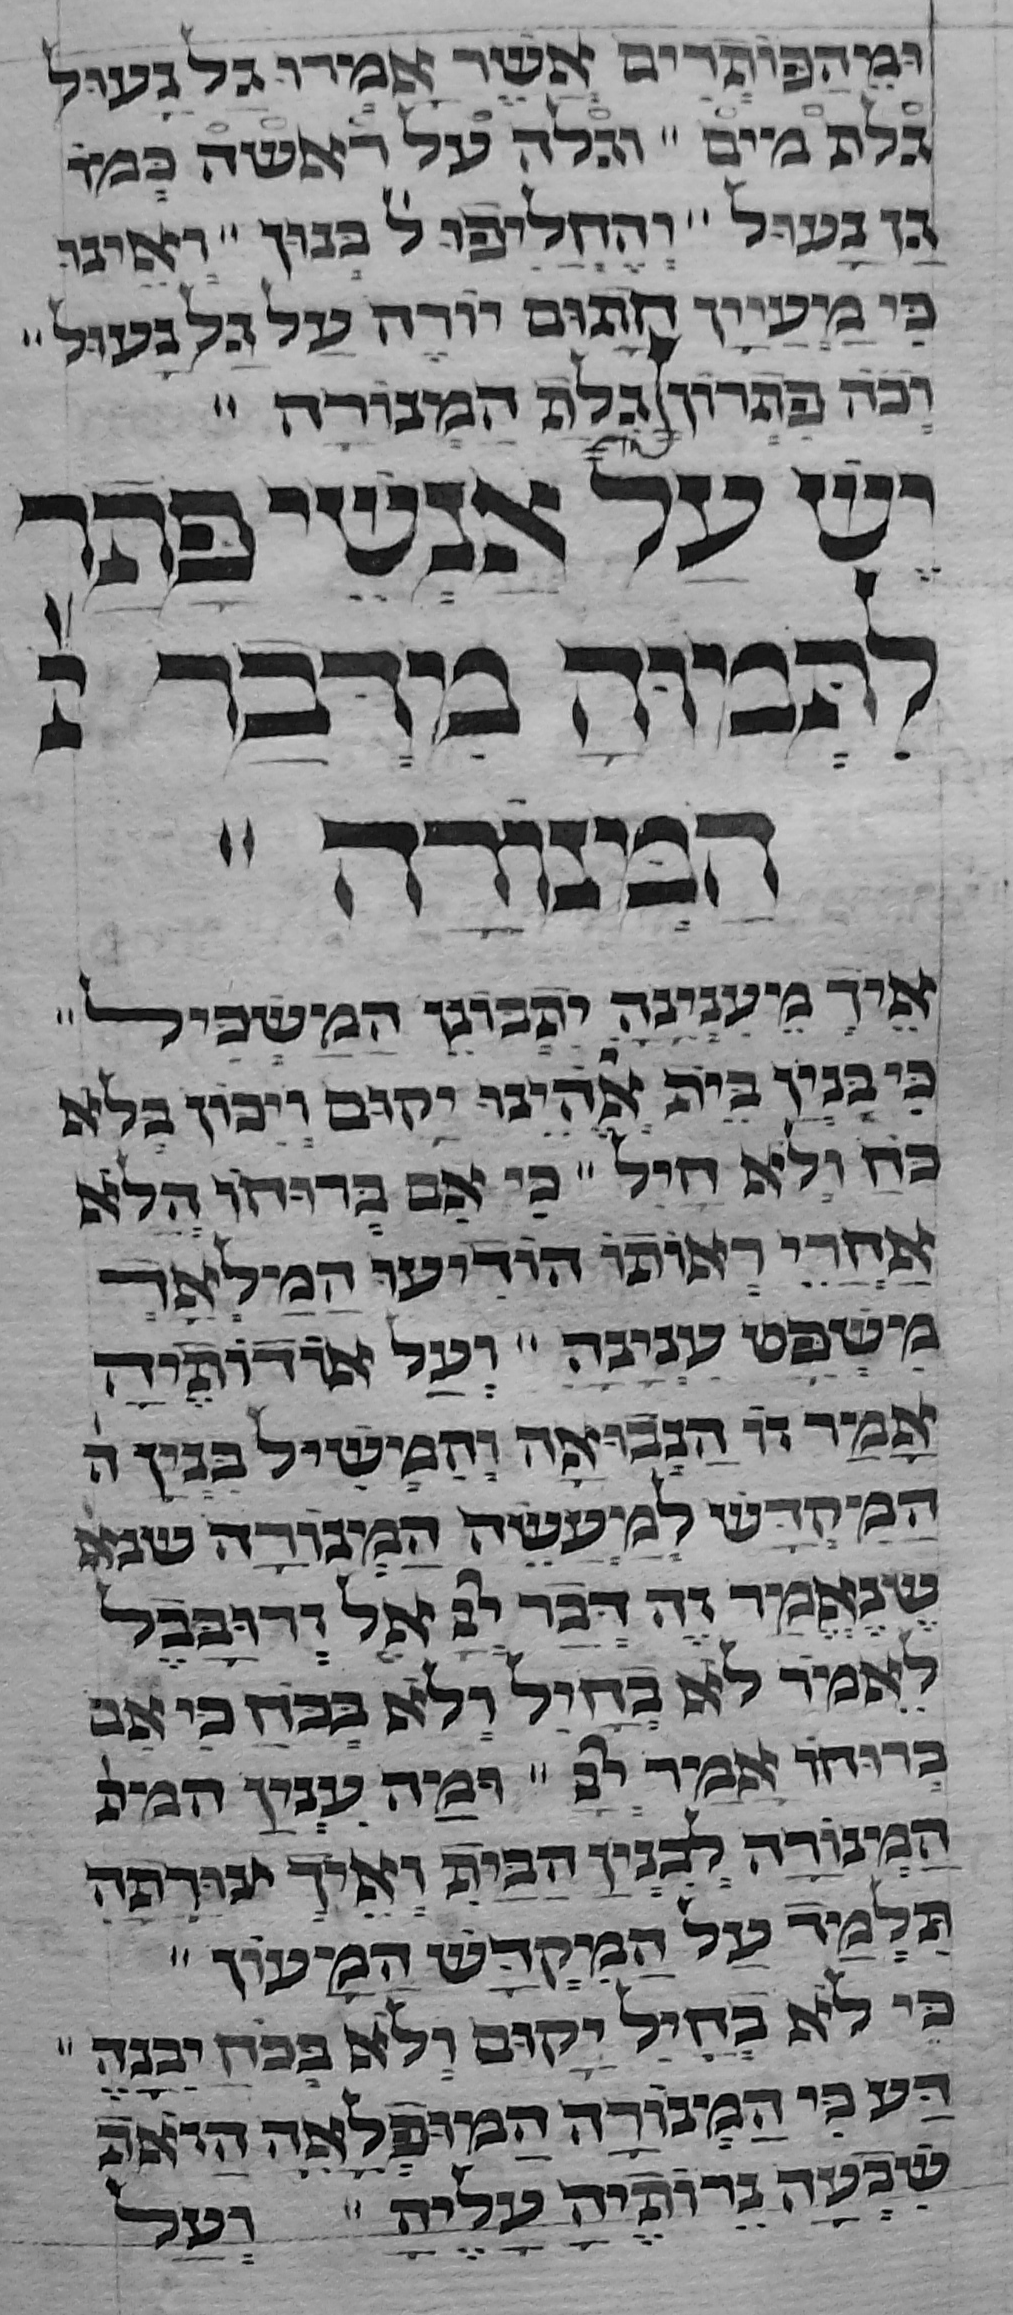 וּמֵהַפּוֹתְרִים אֲשֶׁר אָמְרוּ גַל נָעוּל
גלת מים " וגלה על ראשה כְּמוֹ
גַן נָעוּל " וְהֶחֱלִיפוּ ל כְּנוּן " וְאֵינוּ
כִּי מַעְיָין חָתוּם יוֹרֶה עַל גַל נָעוּל "
וְכֹה פִּתְרוֹן גֻלַת הַמְנוֹרָה "
יֵשׁ עַל אַנְשֵׁי פָתַר
לִתְמוּהָ מִדְבַר ה
הַמְנוֹרָה "
אֵיךְ מֵעִנְיָנָהּ יִתְבוֹנֵן הַמַשְׂכִּיל "
כִּי בִּנְיַן בֵּית אֱלֹהֵינוּ יָקוּם וְיִכּוֹן בְּלֹא
כֹּחַ וְלֹא חַיִל " כִּי אִם בְּרוּחוֹ הֲלֹא
אַחֲרֵי רְאוֹתוֹ הוֹדִיעוֹ הַמַלְאָךְ
מִשְׁפַּט עִנְיָנָהּ " וְעַל אוֹדוֹתֶיהָ
אָמַר זוֹ הַנְבוּאָה וְהִמְשִׁיל בִּנְיַן ה
הַמִקְדָשׁ לְמַעֲשֵׂה הַמְנוֹרָה שנא
שֶׁנֶאֱמַר זֶה דְבַר יְיָ אֶל זְרוּבָבֶל
לֵאמֹר לֹא בְחַיִל וְלֹא בְּכֹחַ כִּי אִם
בְּרוּחוֹ אָמַר יְיָ " וּמַה עִנְיַן המנ
הַמְנוֹרָה לְבִנְיַן הַבַּיִת וְאֵיךְ צוּרָתָהּ
תְלַמֵד עַל הַמִקְדָשׁ הַמָעוֹן "
כִּי לֹא בְּחַיִל יָקוּם וְלֹא בְּכֹחַ יִבָּנֶה "
דַּע כִּי הַמְנוֹרָה הַמוּפְלָאָה הַזֹאת
שִׁבְעָה נֵרוֹתֶיהָ עָלֶיהָ " וְעַל